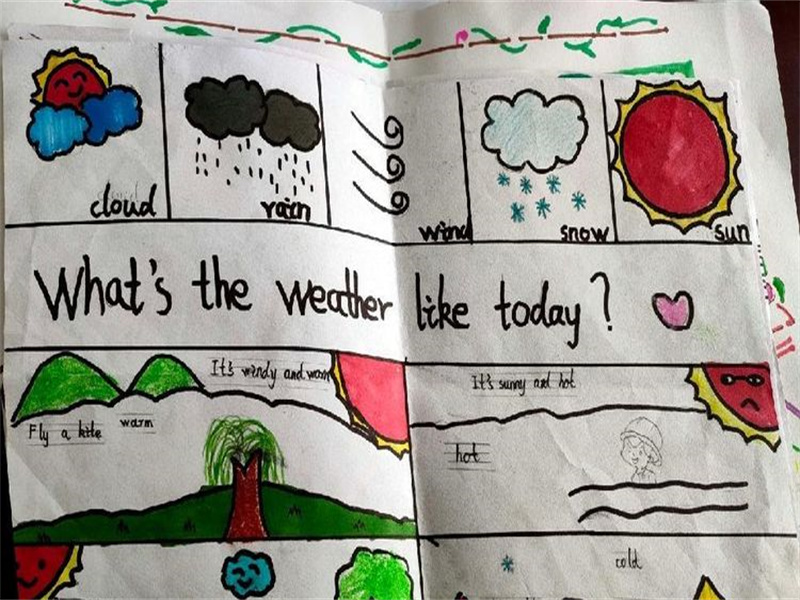 cloud
rain
wind
snow
sun
What's the weather like today?
It's windy and warm
Fly a kite
warm
It's sunny and hot
hot
cold